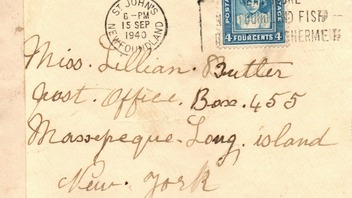 ST. JOHN'S
6 - PM
15 SEP
1940
NEWFOUNDLAND
POSTAGE
4 FOUR CENTS 4
FISH
Miss. Lillian Butler
Post. Office. Box. 455
Massepeque - Long. island
New. York